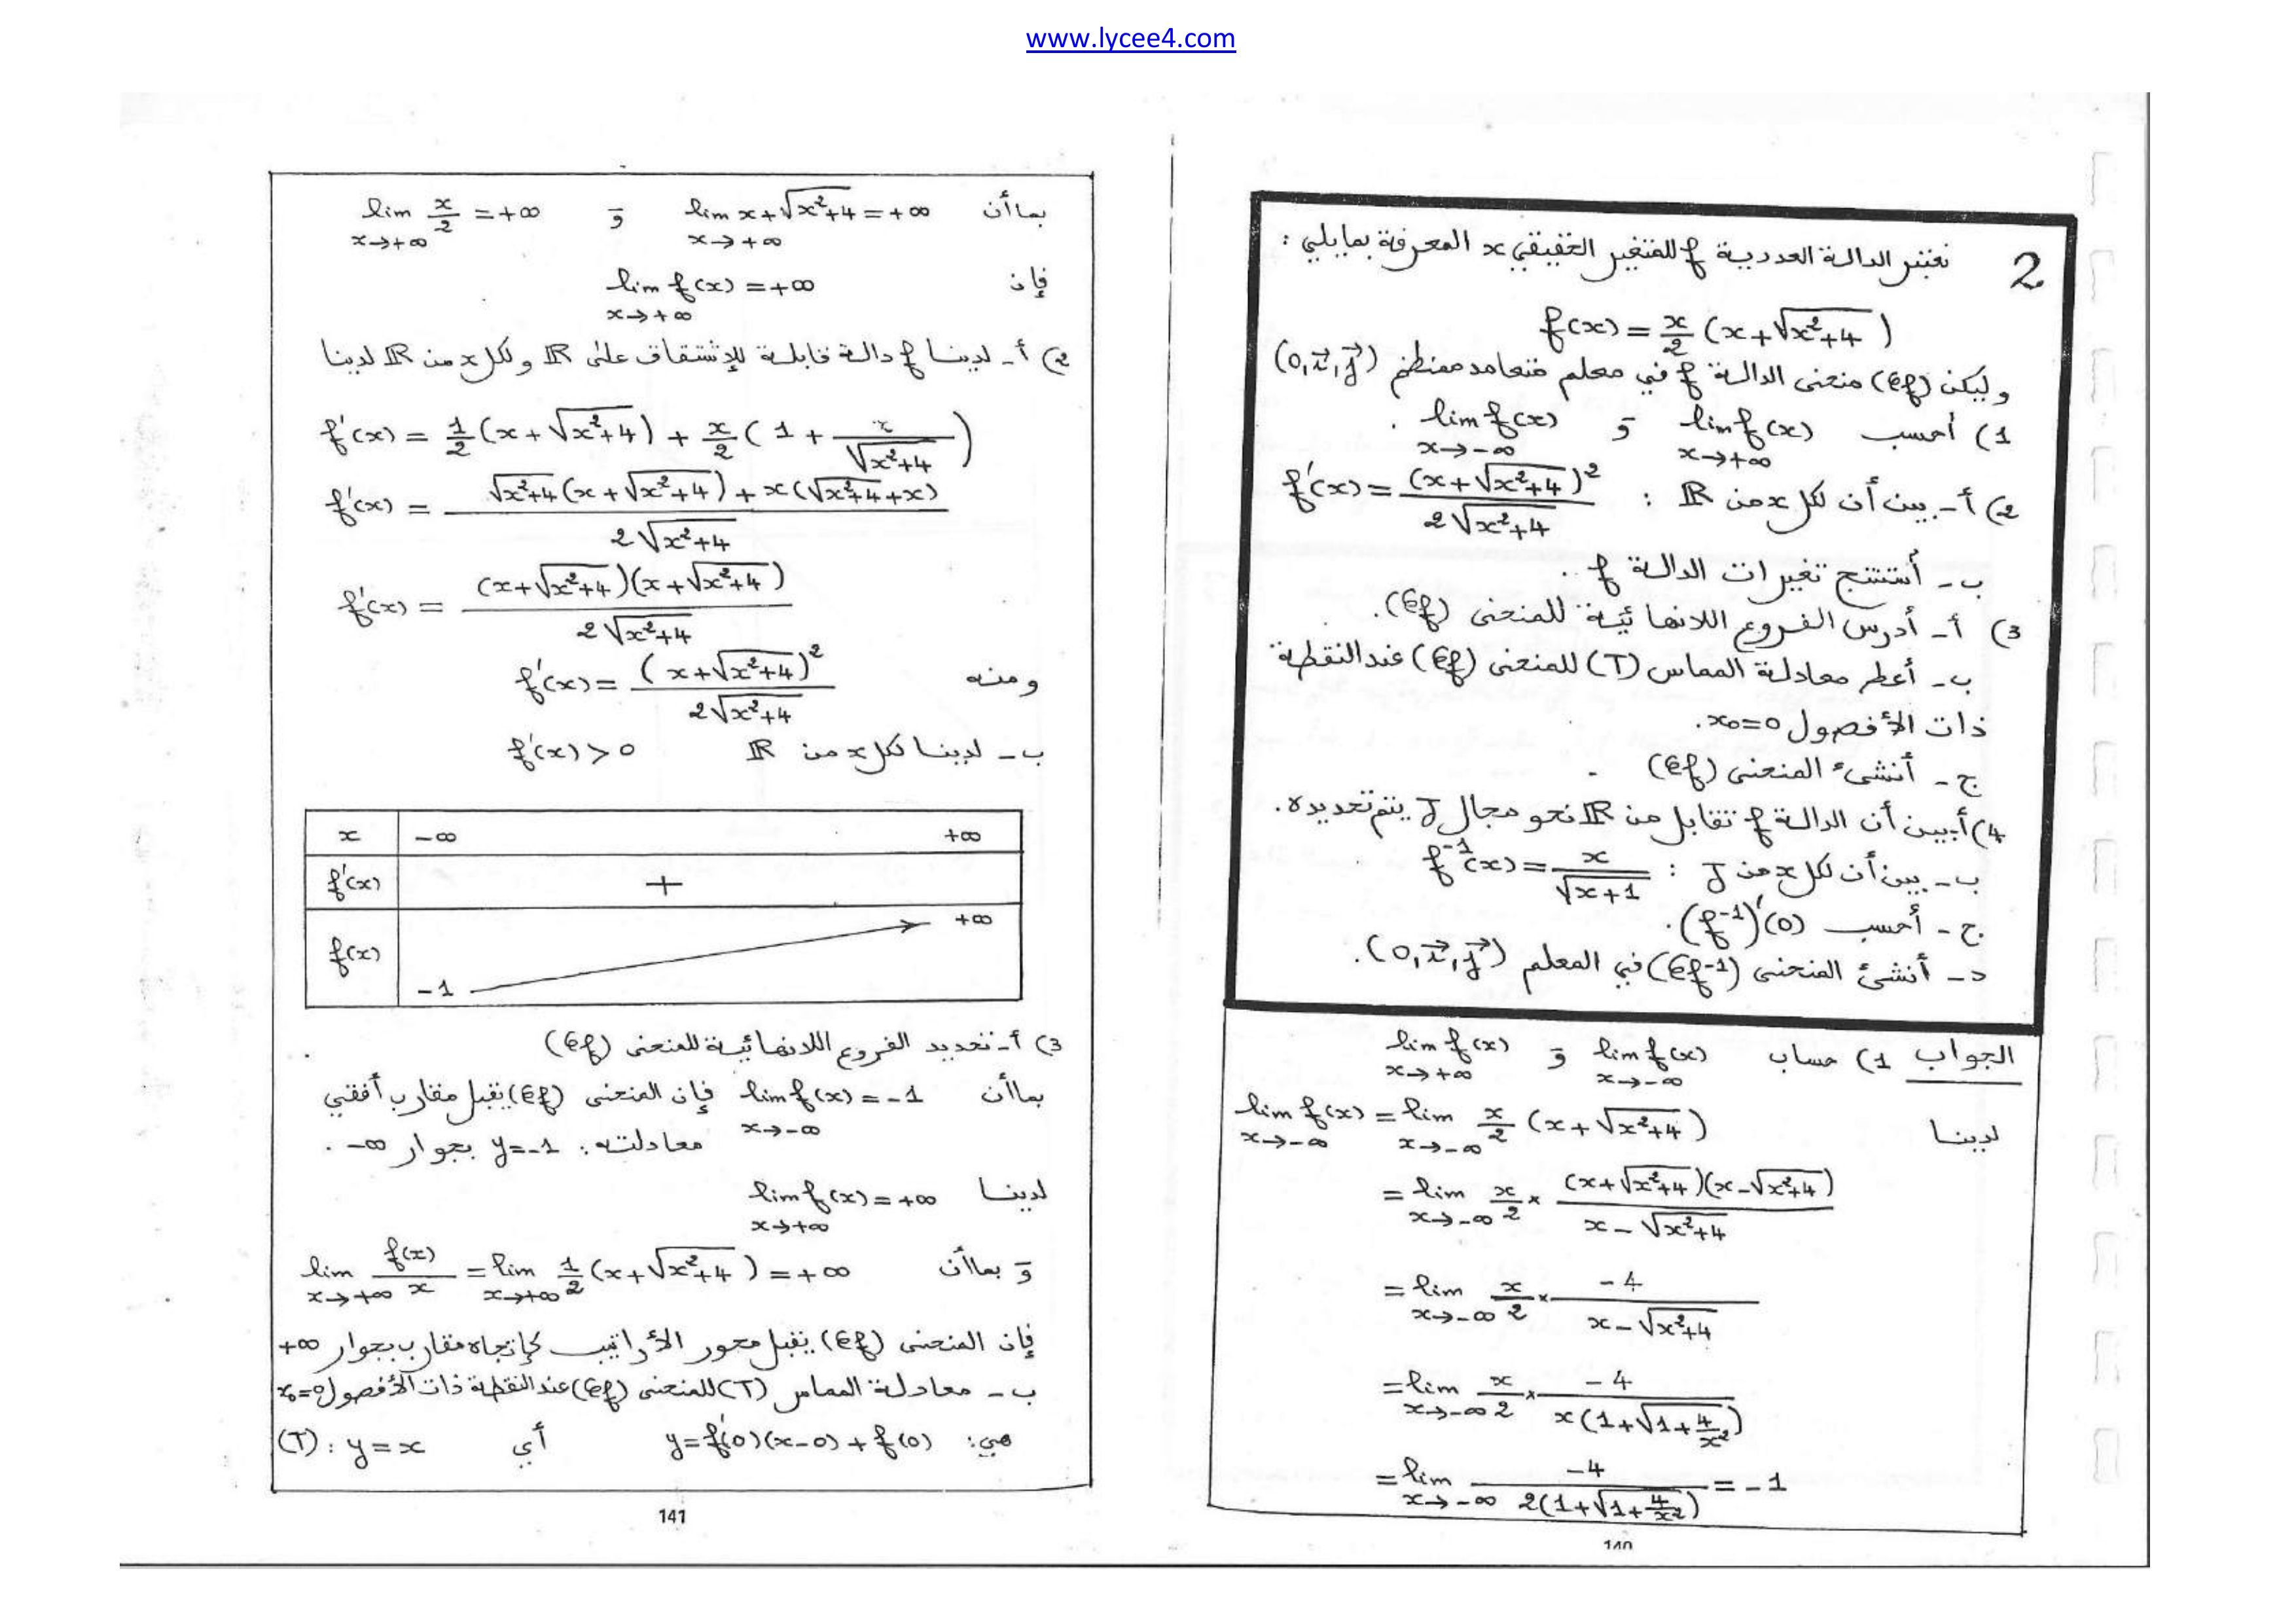 www.lycee4.com
2 نعتبر الدالة العددية f للمتغير الحقيقي x المعرفة بمايلي :
f(x) = x/2 (x+√(x²+4))
وليكن (Cf) منحنى الدالة f في معلم متعامد ممنظم (O,i⃗,j⃗)
1) أحسب lim f(x) x→+∞ و lim f(x) x→-∞ .
2) أ- بين أن لكل x من ℝ : f'(x) = (x+√(x²+4))² / 2√(x²+4)
ب- أستنتج تغيرات الدالة f .
3) أ- أدرس الفروع اللانهائية للمنحنى (Cf).
ب- أعط معادلة المماس (T) للمنحنى (Cf) عند النقطة
ذات الأفصول x₀=0.
ج- أنشىء المنحنى (Cf) .
4) أ- بين أن الدالة f تقابل من ℝ نحو مجال J يتم تحديده.
ب- بين أن لكل x من J : f⁻¹(x) = x/√(x+1)
ج- أحسب (f⁻¹)'(0).
د- أنشئ المنحنى (Cf⁻¹) في المعلم (O,i⃗,j⃗).
الجواب 1) حساب lim f(x) x→-∞ و lim f(x) x→+∞
لدينا lim f(x) x→-∞ = lim x→-∞ x/2 (x+√(x²+4))
= lim x→-∞ x/2 × (x+√(x²+4))(x-√(x²+4)) / x-√(x²+4)
= lim x→-∞ x/2 × -4 / x-√(x²+4)
= lim x→-∞ x/2 × -4 / x(1+√(1+4/x²))
= lim x→-∞ -4 / 2(1+√(1+4/x²)) = -1
140
بما أن lim x+√(x²+4) = +∞ x→+∞ و lim x/2 = +∞ x→+∞
فإن lim f(x) = +∞ x→+∞
2) أ- لدينا f دالة قابلة للإشتقاق على ℝ ولكل x من ℝ لدينا
f'(x) = 1/2 (x+√(x²+4)) + x/2 (1 + x/√(x²+4))
f'(x) = √(x²+4)(x+√(x²+4)) + x(√(x²+4)+x) / 2√(x²+4)
f'(x) = (x+√(x²+4))(x+√(x²+4)) / 2√(x²+4)
ومنه f'(x) = (x+√(x²+4))² / 2√(x²+4)
ب- لدينا لكل x من ℝ f'(x) > 0
x -∞ +∞
f'(x) +
f(x) -1 +∞
3) أ- تحديد الفروع اللانهائية للمنحنى (Cf) .
بما أن lim f(x) = -1 x→-∞ فإن المنحنى (Cf) يقبل مقارب أفقي
معادلته : y=-1 بجوار -∞ .
لدينا lim f(x) = +∞ x→+∞
و بما أن lim x→+∞ f(x)/x = lim x→+∞ 1/2 (x+√(x²+4)) = +∞
فإن المنحنى (Cf) يقبل محور الأراتيب كإتجاه مقارب بجوار +∞
ب- معادلة المماس (T) للمنحنى (Cf) عند النقطة ذات الأفصول x₀=0
هي: y=f'(0)(x-0)+f(0) أي (T): y=x
141